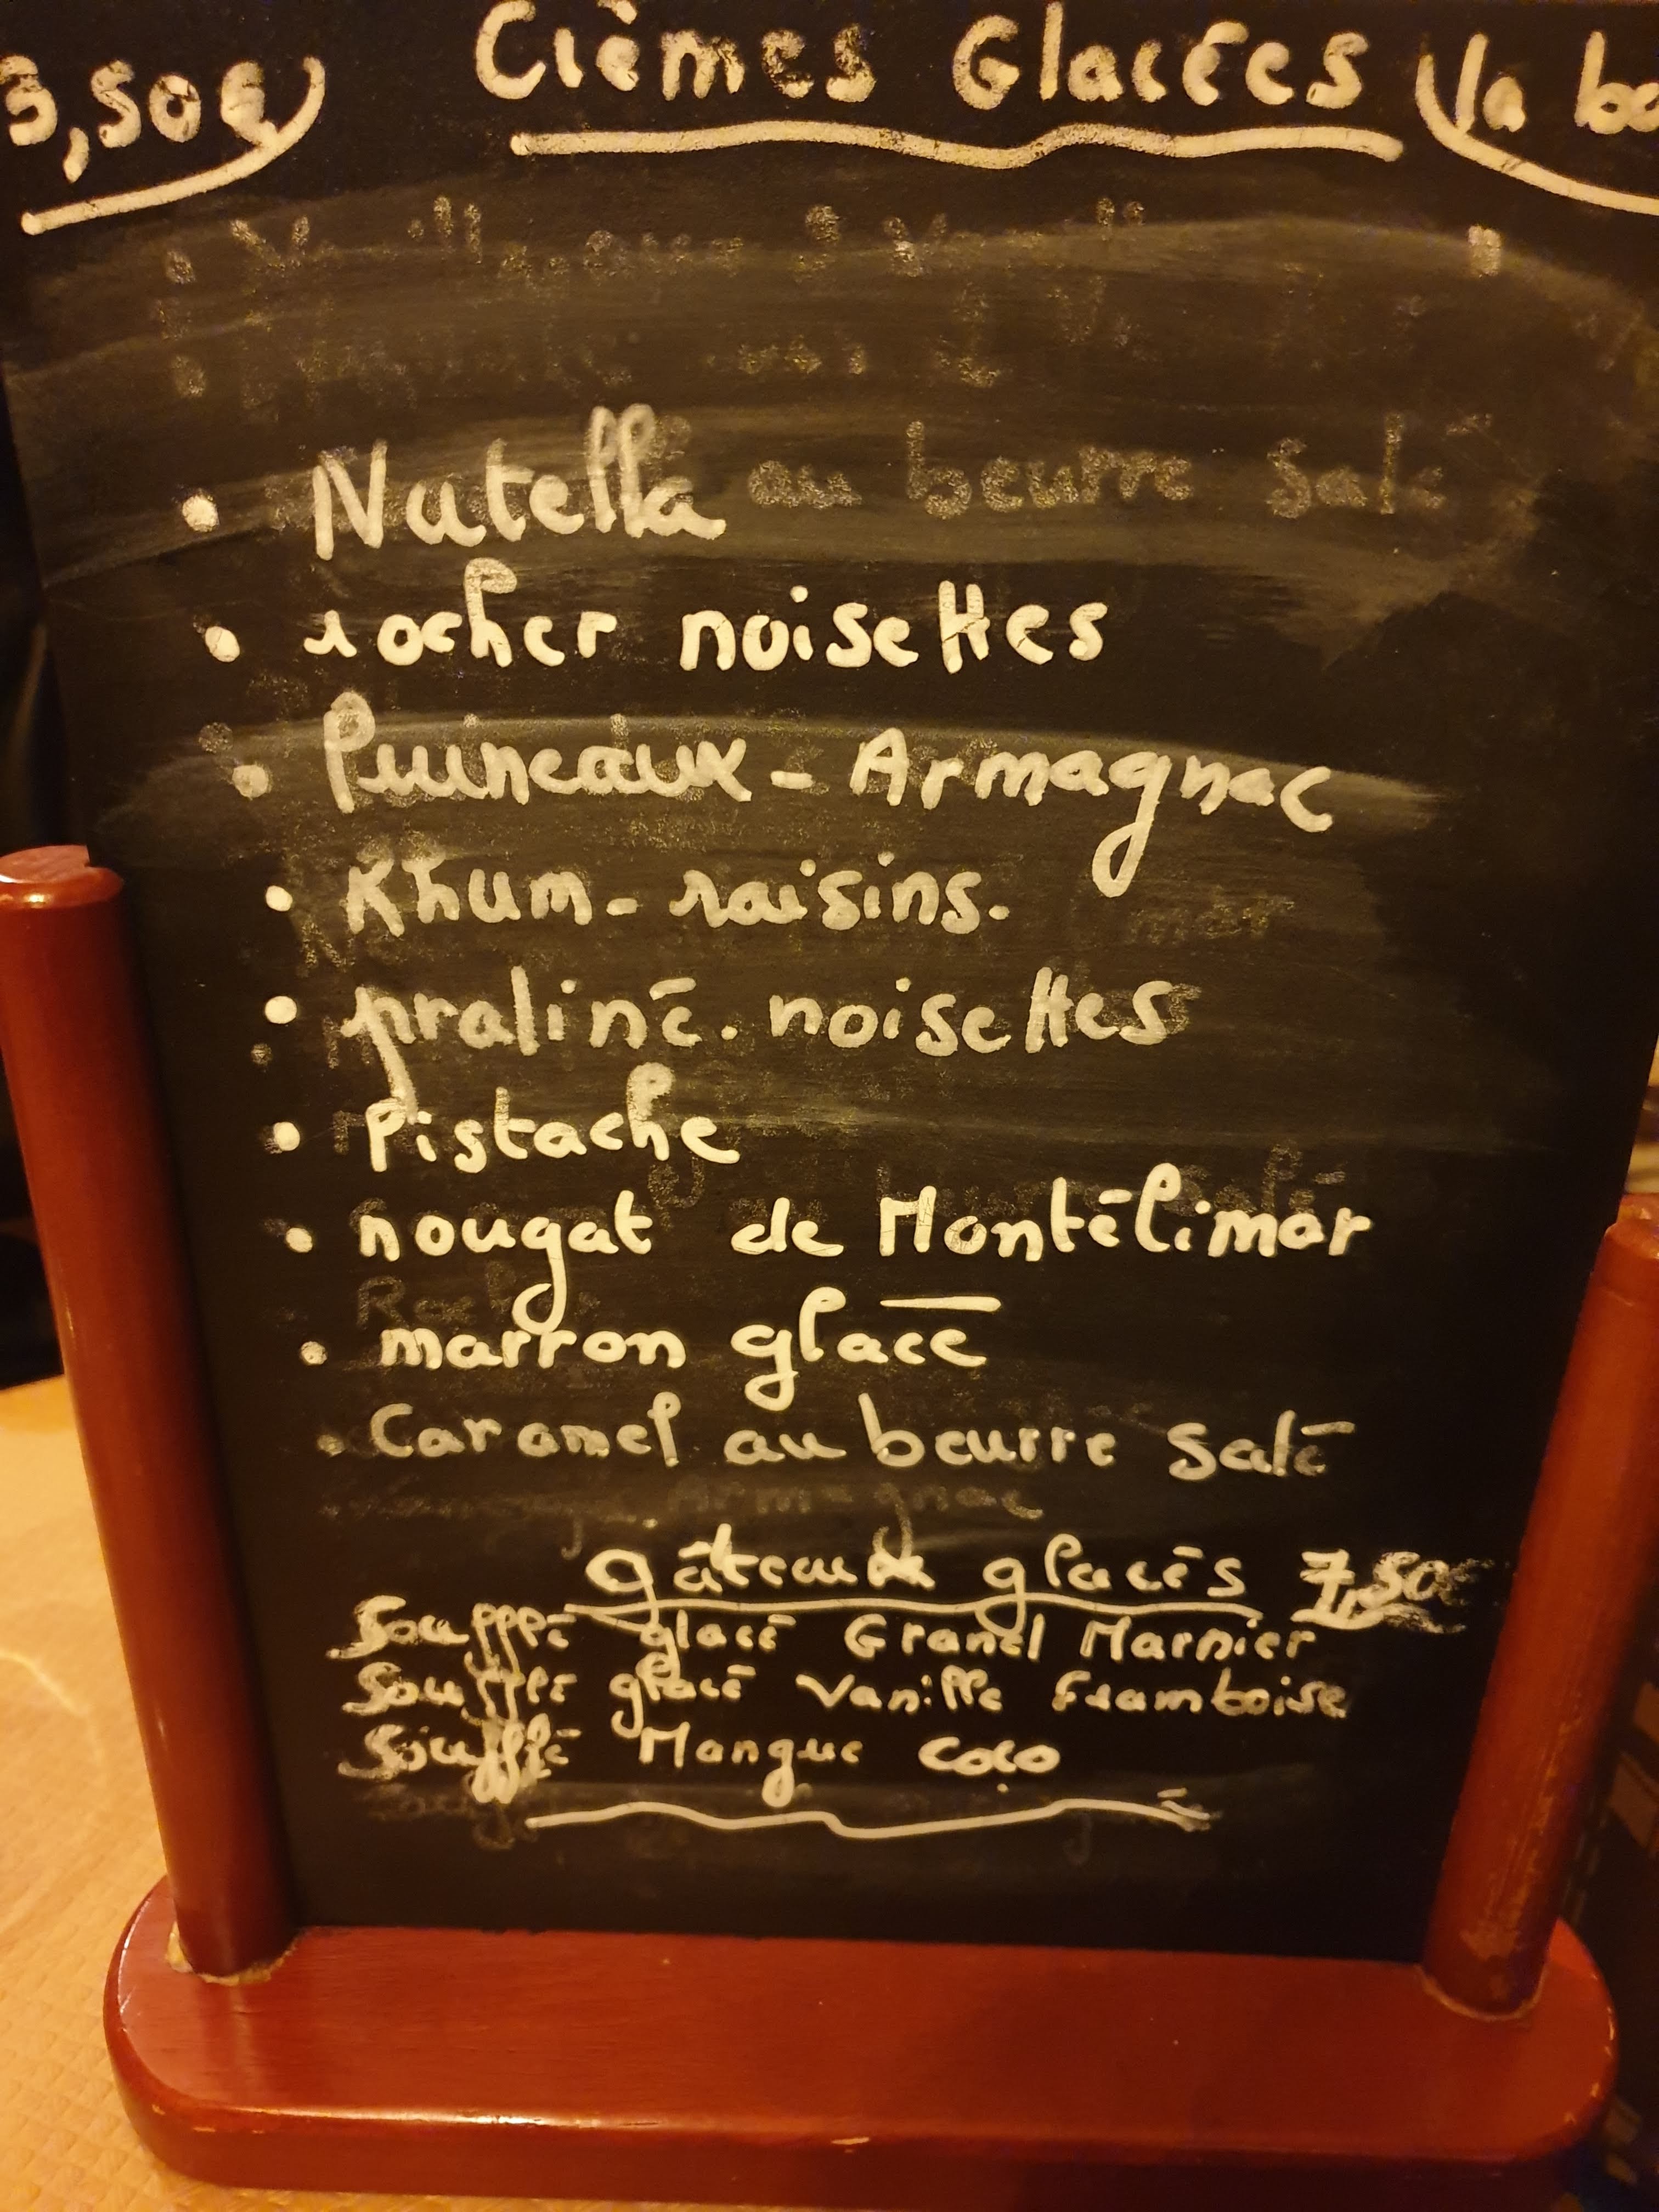 3,50€) Crèmes Glacées (la bo
• Nutella au beurre salé
• rocher noisettes
• Pruneaux - Armagnac
• Rhum - raisins.
• praliné. noisettes
• Pistache
• nougat de Montélimar
• marron glacé
• Caramel au beurre salé
Armagnac
gâteaux glacés 7,50€
Soufflé glacé Grand Marnier
Soufflé glacé Vanille Framboise
Soufflé Mangue Coco